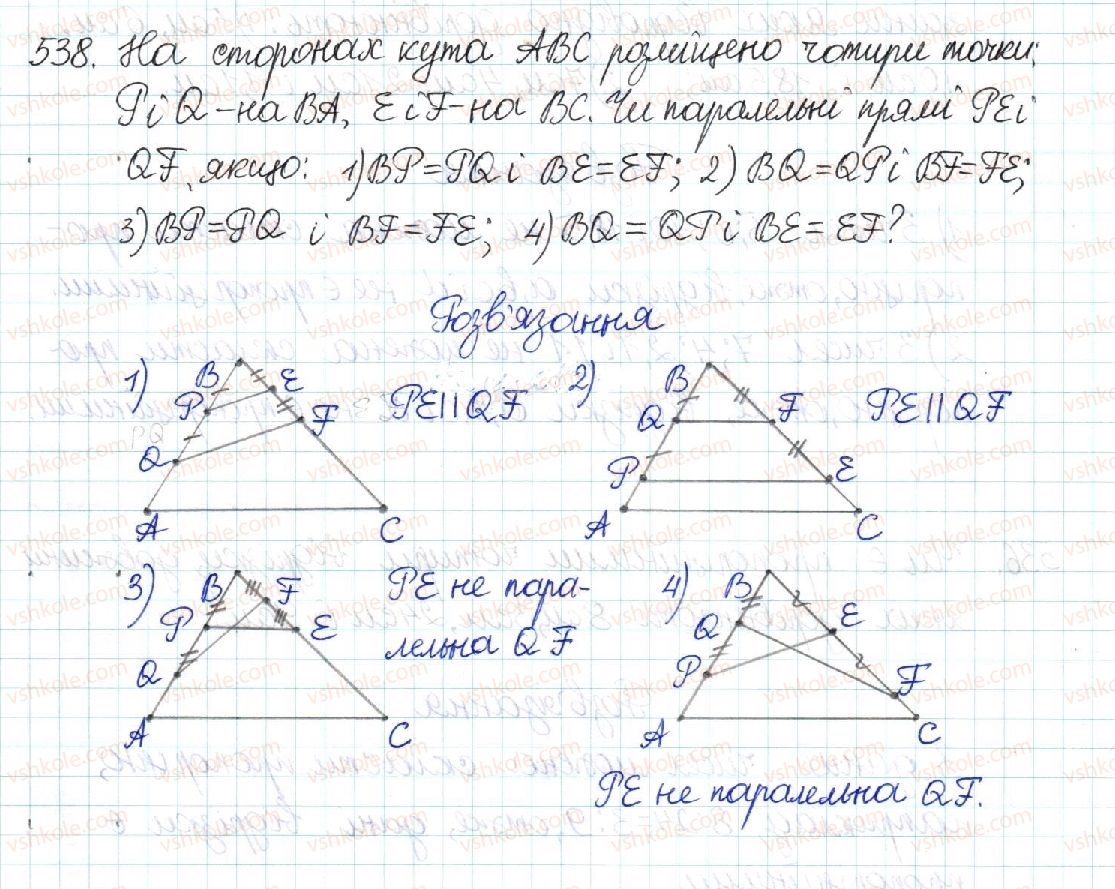 538. На сторонах кута ABC розміщено чотири точки:
P і Q – на BA, E і F – на BC. Чи паралельні прямі PE і
QF, якщо: 1) BP = PQ і BE = EF; 2) BQ = QP і BF = FE;
3) BP = PQ і BF = FE; 4) BQ = QP і BE = EF?
Розв'язання
1) B E P F Q A C PE || QF
2) B Q F P E A C PE || QF
3) B F P E Q A C PE не пара-
лельна QF
4) B Q E P F A C
PE не паралельна QF.
vshkole.com